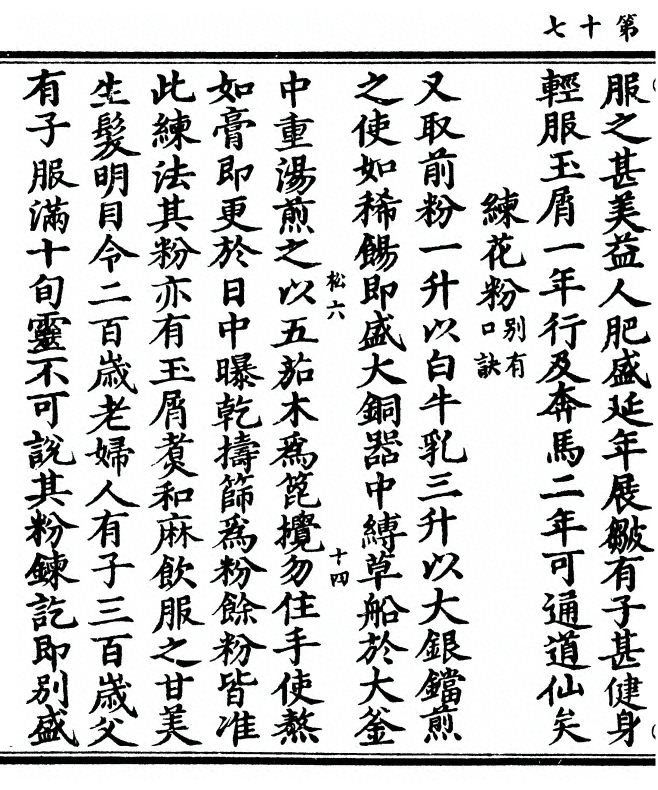 第十七
服之甚美益人肥盛延年展皺有子甚健身
輕服玉屑一年行及奔馬二年可通道仙矣
練花粉別有口訣
又取前粉一升以白牛乳三升以大銀鐺煎
之使如稀餳即盛大銅器中縛草船於大釜
松六
十四
中重湯煎之以五茄木爲篦攪勿住手使熬
如膏即更於日中曝乾擣篩爲粉餘粉皆准
此練法其粉亦有玉屑煑和麻飲服之甘美
生髮明目令二百歳老婦人有子三百歳父
有子服滿十旬靈不可說其粉鍊訖即別盛